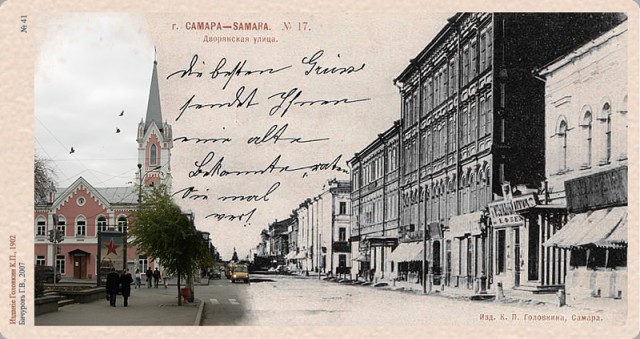 № 41
г. САМАРА—SAMARA. № 17.
Дворянская улица.
die besten Grüsse
sendet Ihnen
eine alte
Bekannte, raten
Sie mal
wer!
Издание Головкина К.П., 1902
Бичуровъ Г.В., 2007
Изд. К. П. Головкина, Самара.